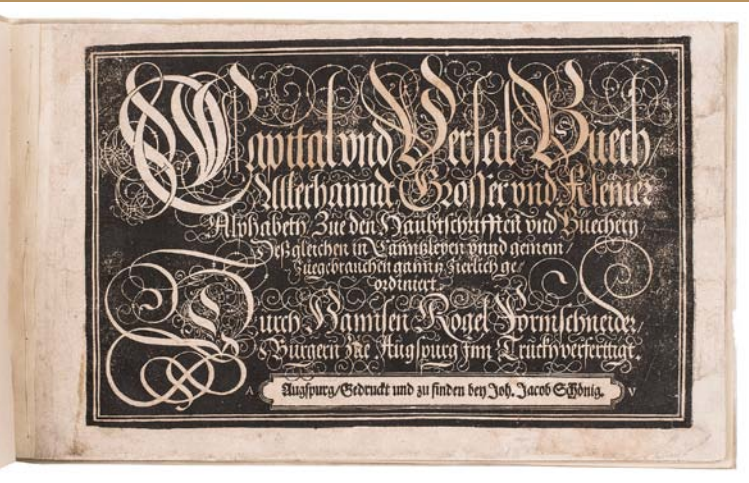 Capital vnd Versal Buech/
Allerhannd Grosser vnd Klener
Alphabeth/ Zue den Haubtschrifften vnd Buechern/
Deßgleichen in Canntzleyen vnnd gemein/
Zuegebrauchen gannz Zierlich ge/
ordiniert.
Durch Hannsen Rogel Formschneider/
Burgern zue Augspurg inn Truckh verferttigt.
A Augspurg/Gedruckt und zu finden bey Joh. Jacob Schönig. V